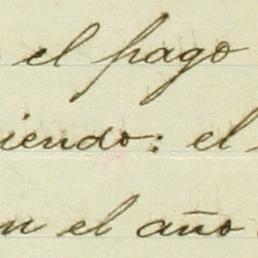 el pago
iendo: el
en el año